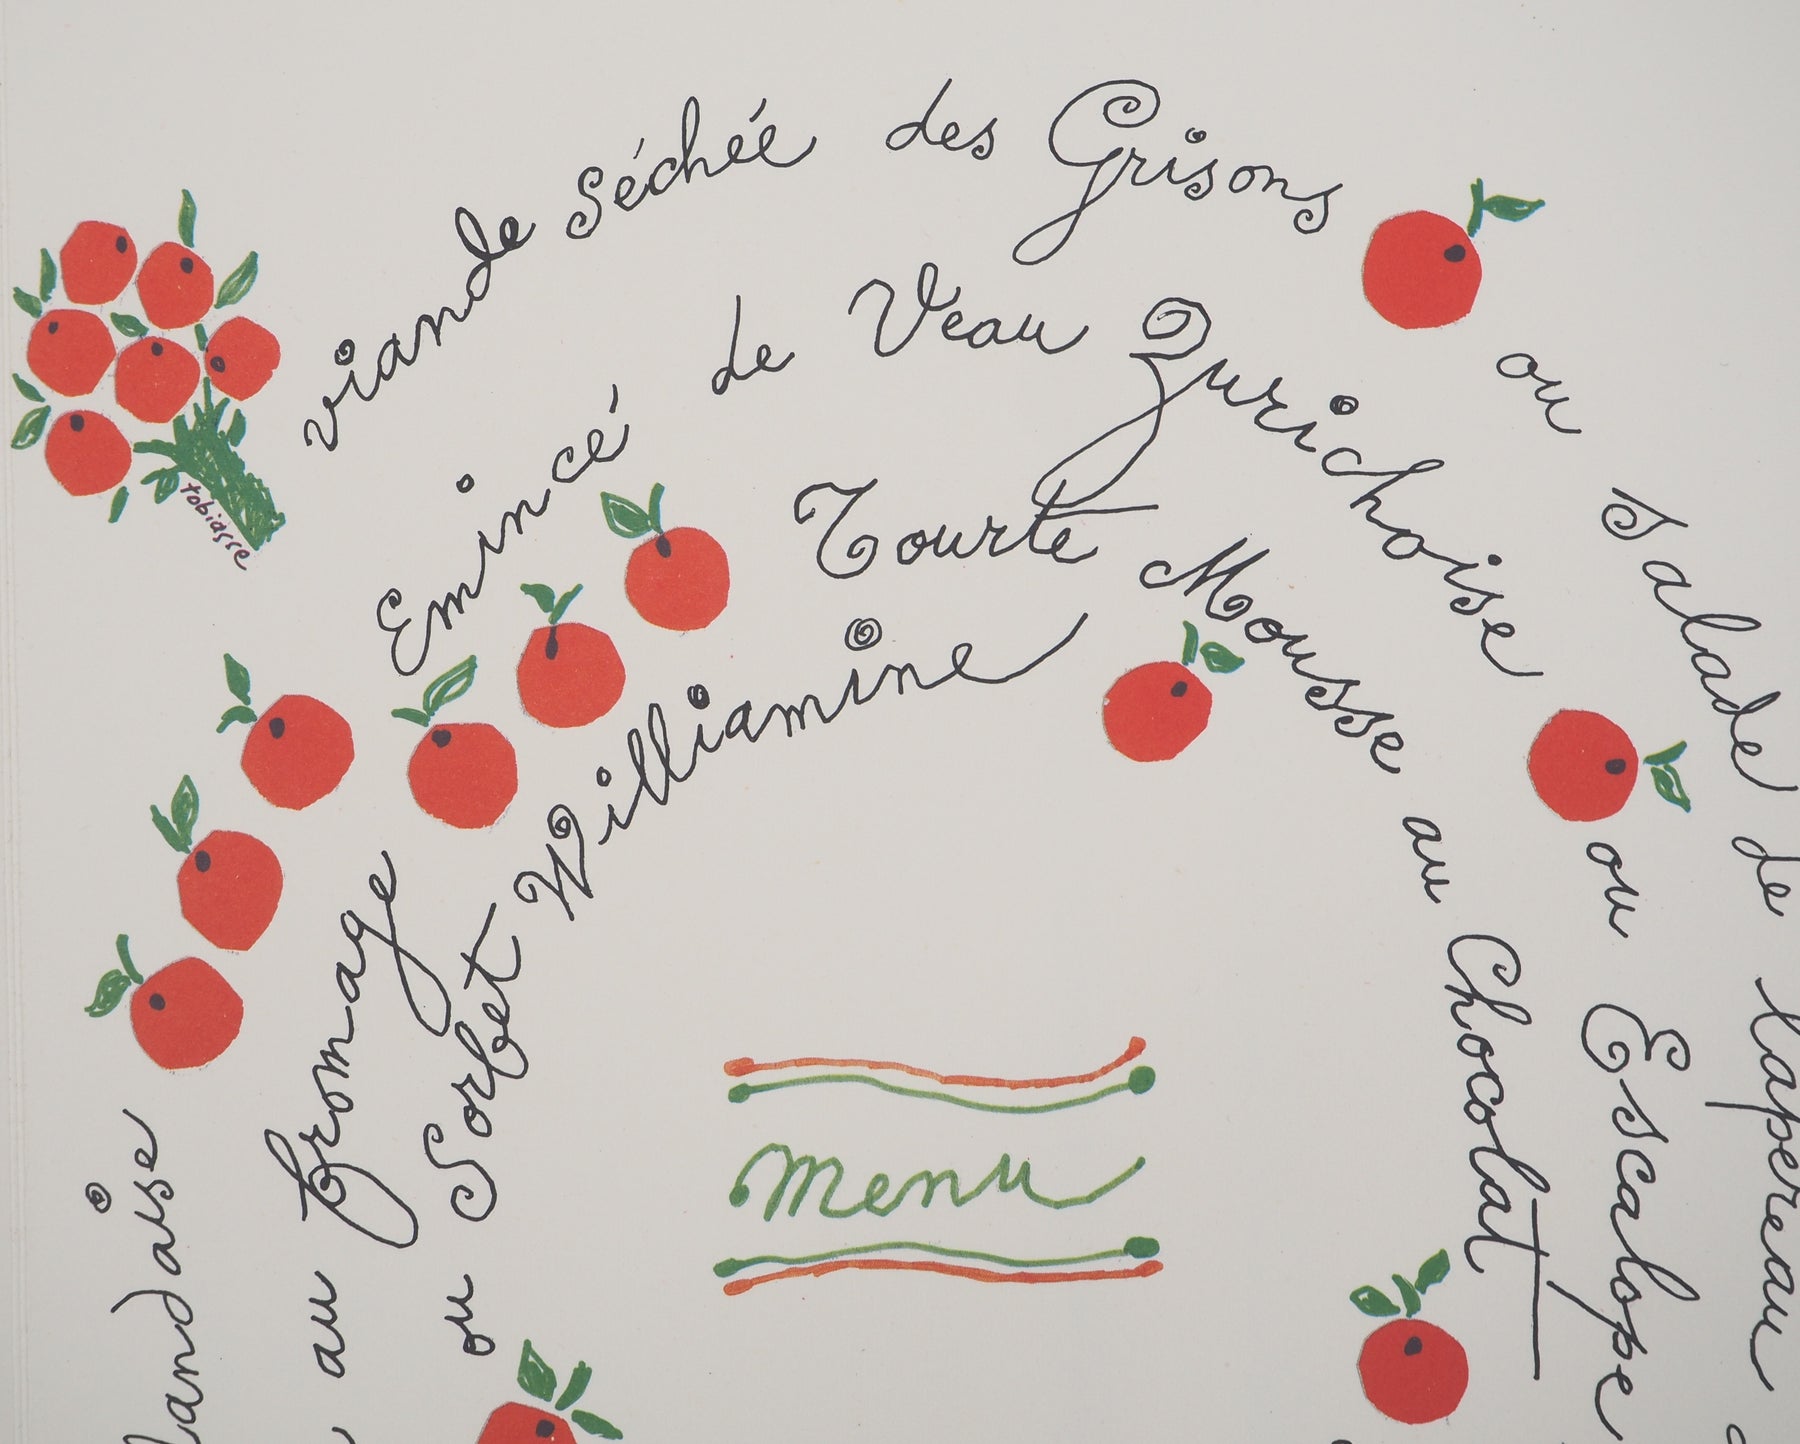 viande séchée des Grisons
ou salade de lapereau
Emincé de Veau Zurichoise
ou Escalope
Tourte Mousse au Chocolat
ou Sorbet Williamine
au fromage
menu
tobiasse